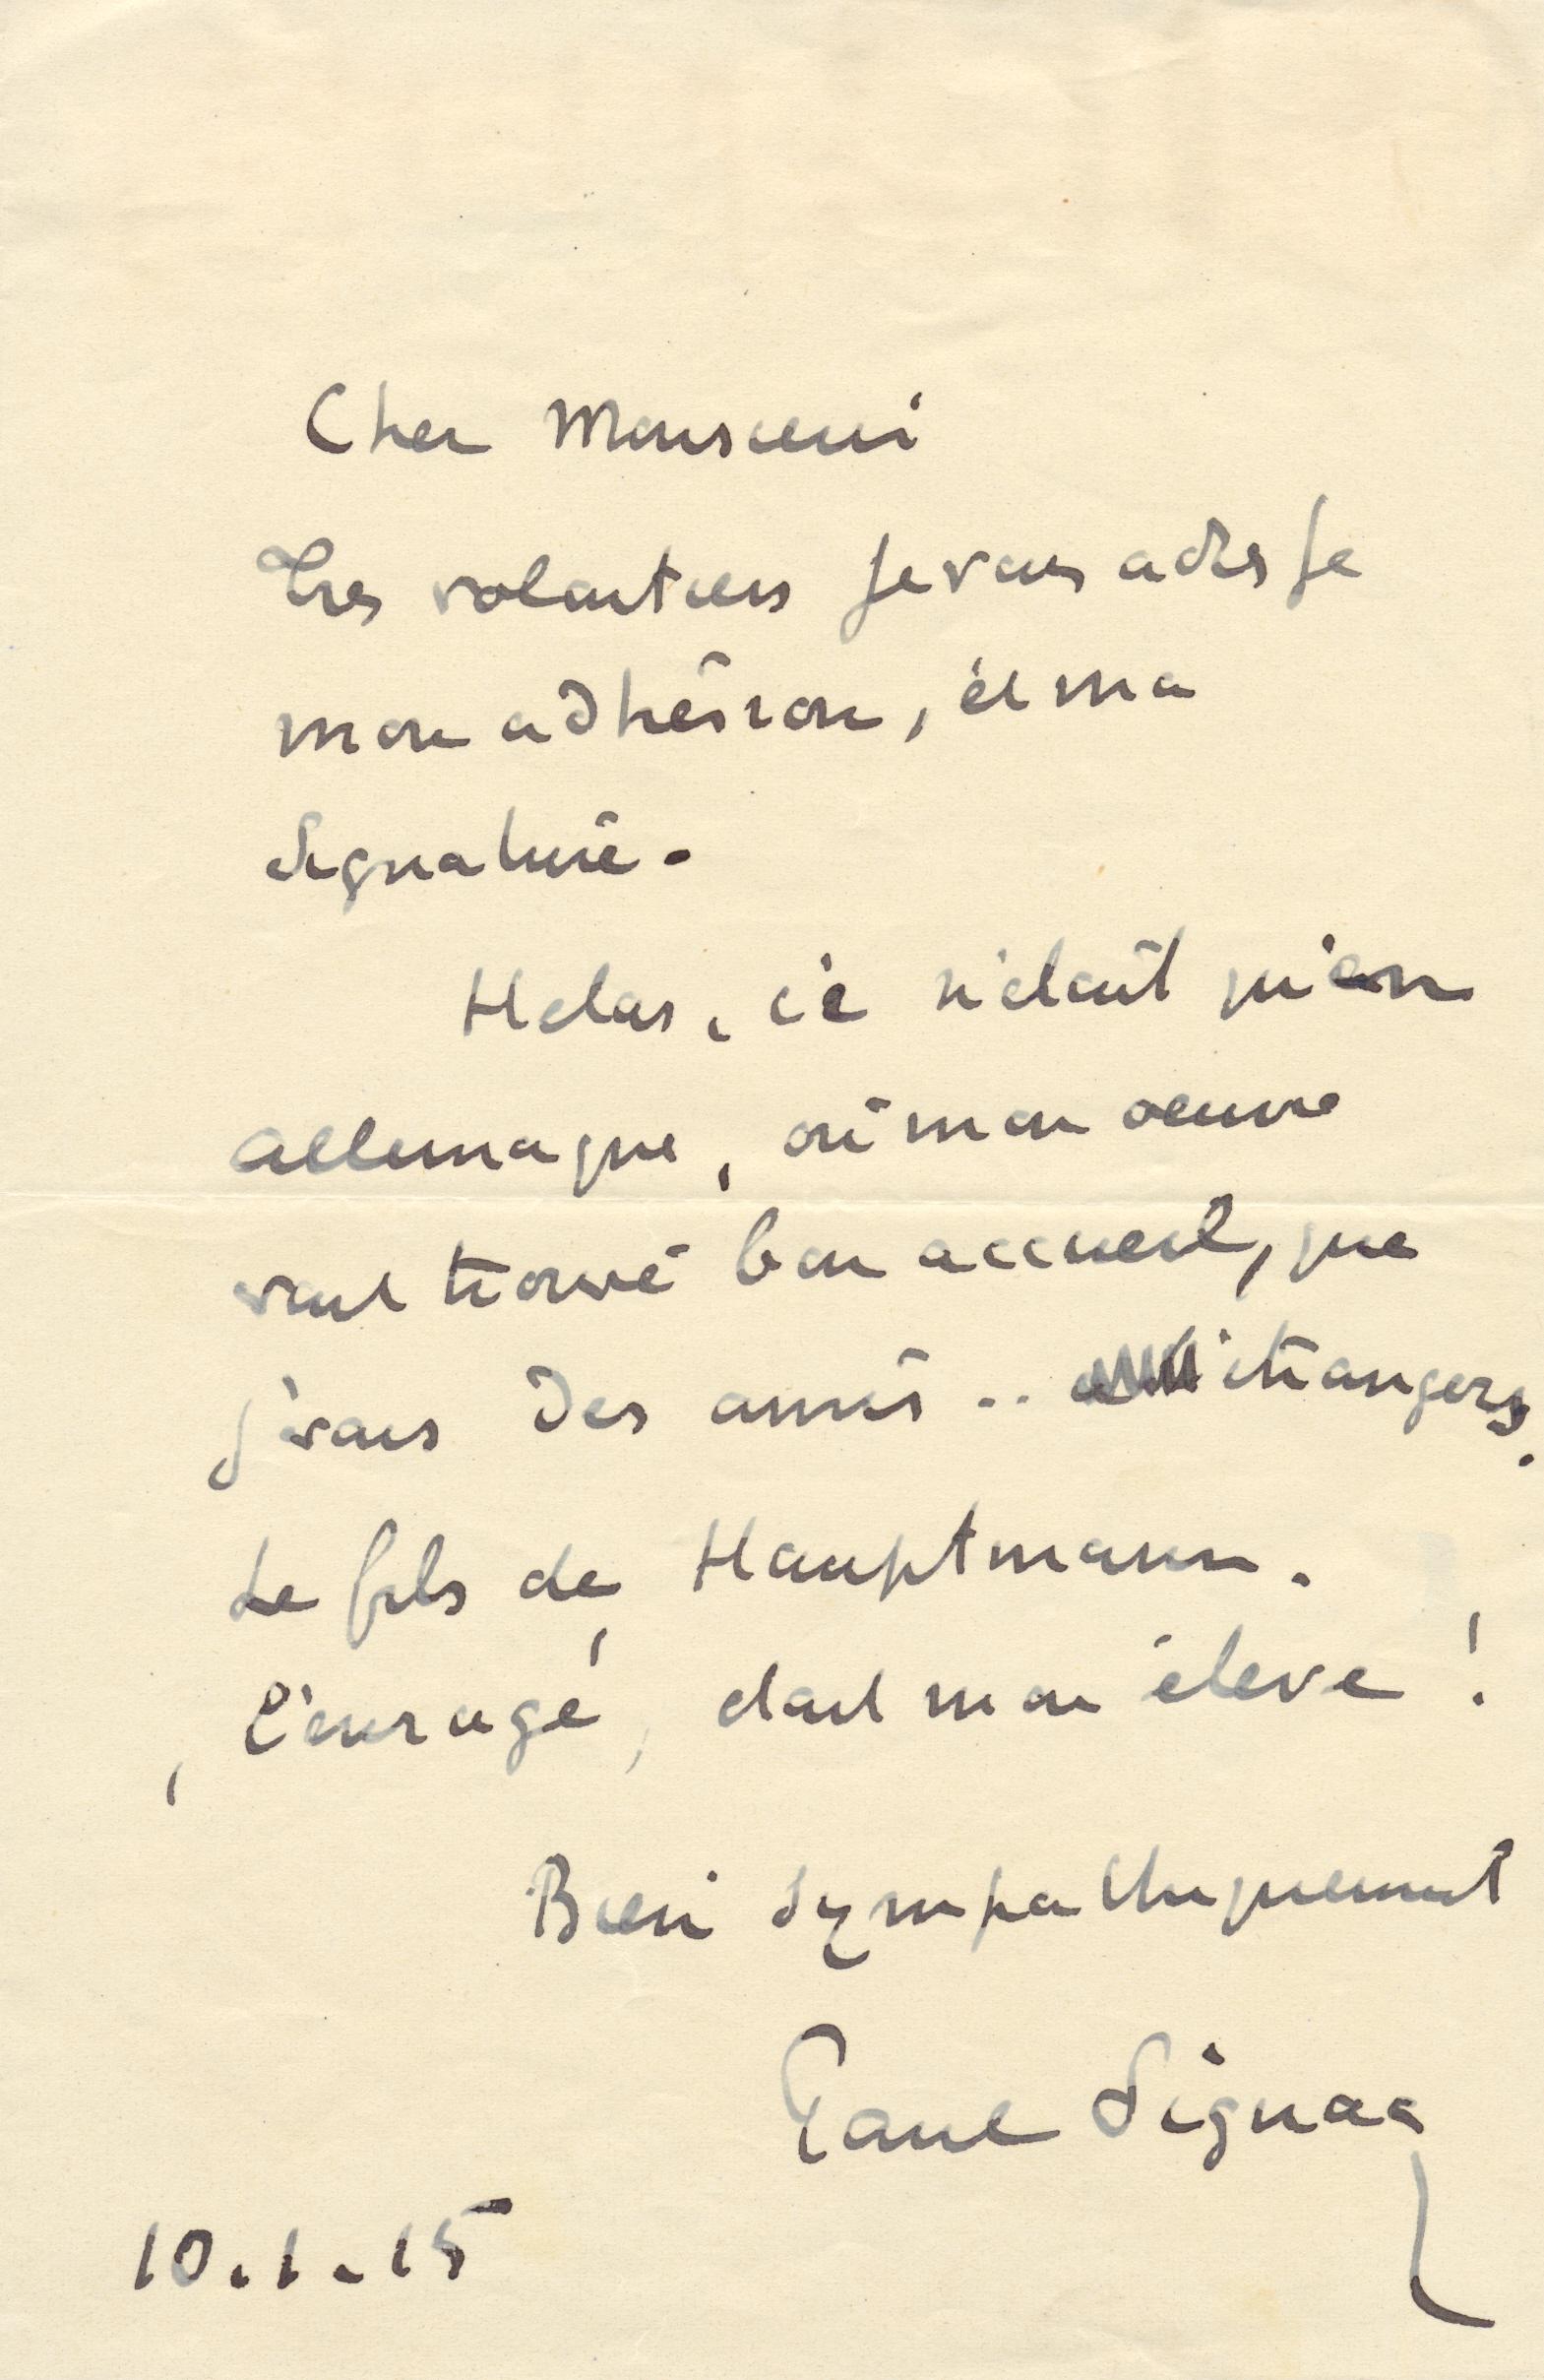 Cher Monsieur
Très volontiers je vous adresse
mon adhésion, et ma
signature.
Helas, ce n'etait qu'en
allemagne, où mon oeuvre
vait trouvé bon accueil, que
j'vais des amis .. étrangers.
Le fils de Hauptmann.
, l'enragé, etait mon élève !
Bien sympathiquement
Paul Signac
10.1.15